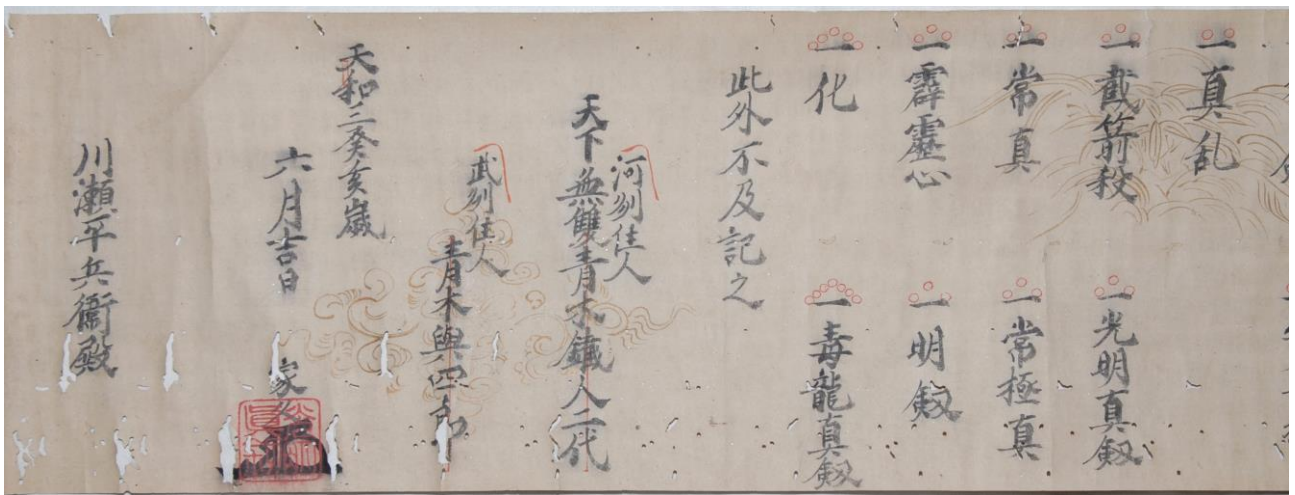 一 真乱
一 截箭殺
一 光明真釼
一 常真
一 常極真
一 霹靂心
一 明釼
一 化
一 毒龍真釼
此外不及記之
河刕住人
天下無雙青木鐵人二代
武刕住人
青木與四郎
天和三癸亥歳
六月吉日
家久
川瀬平兵衛殿